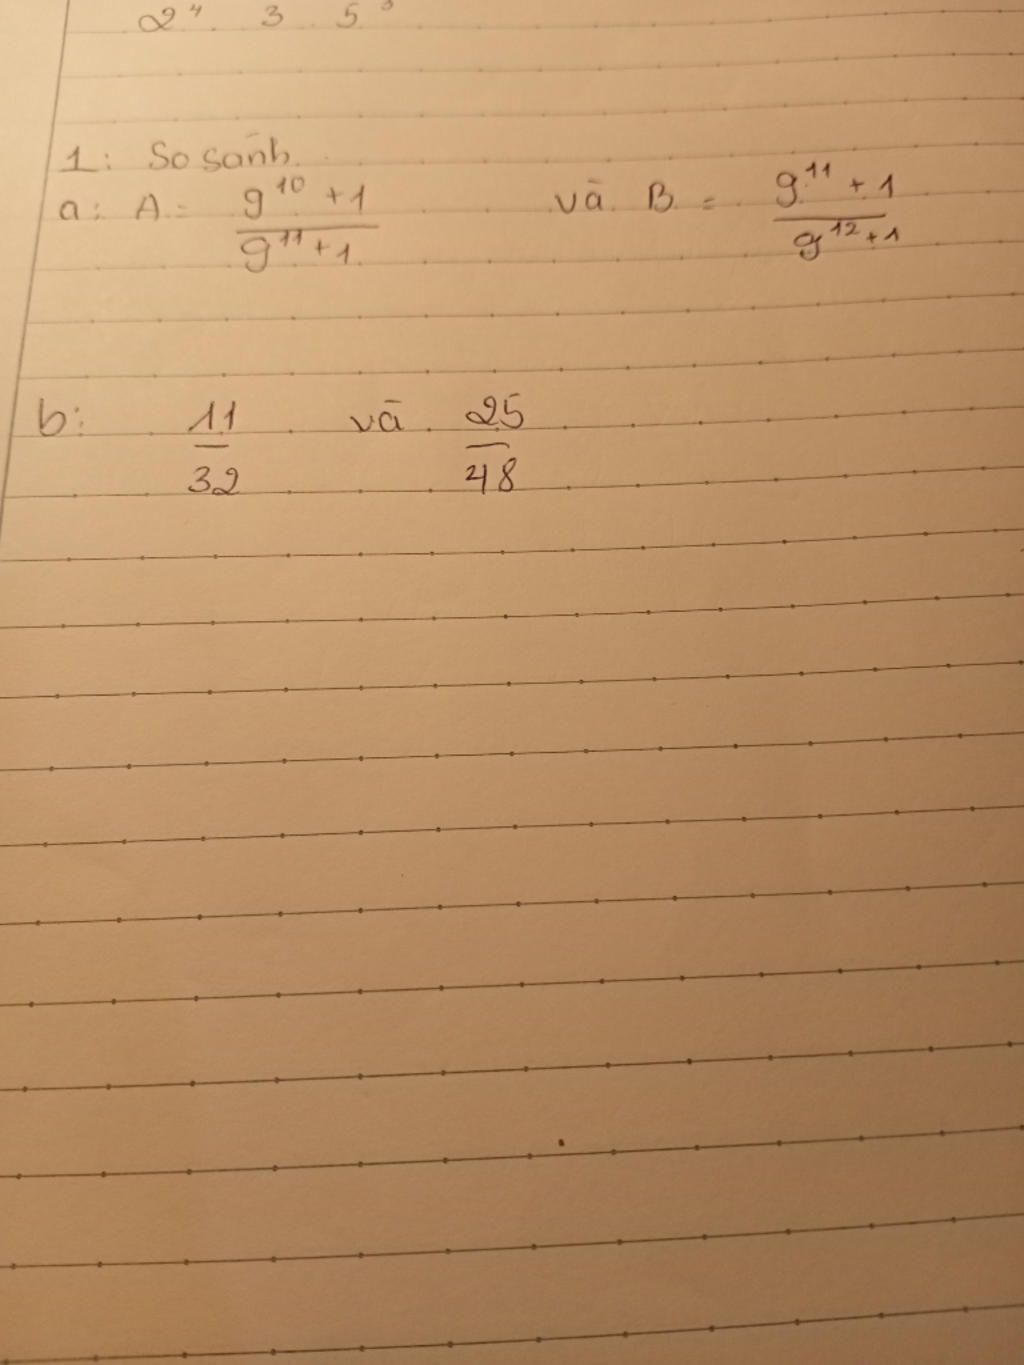 2⁴ 3 5³
1: So sánh
a: A = 9¹⁰ + 1 / 9¹¹ + 1 và B = 9¹¹ + 1 / 9¹² + 1
b: 11 / 32 và 25 / 48